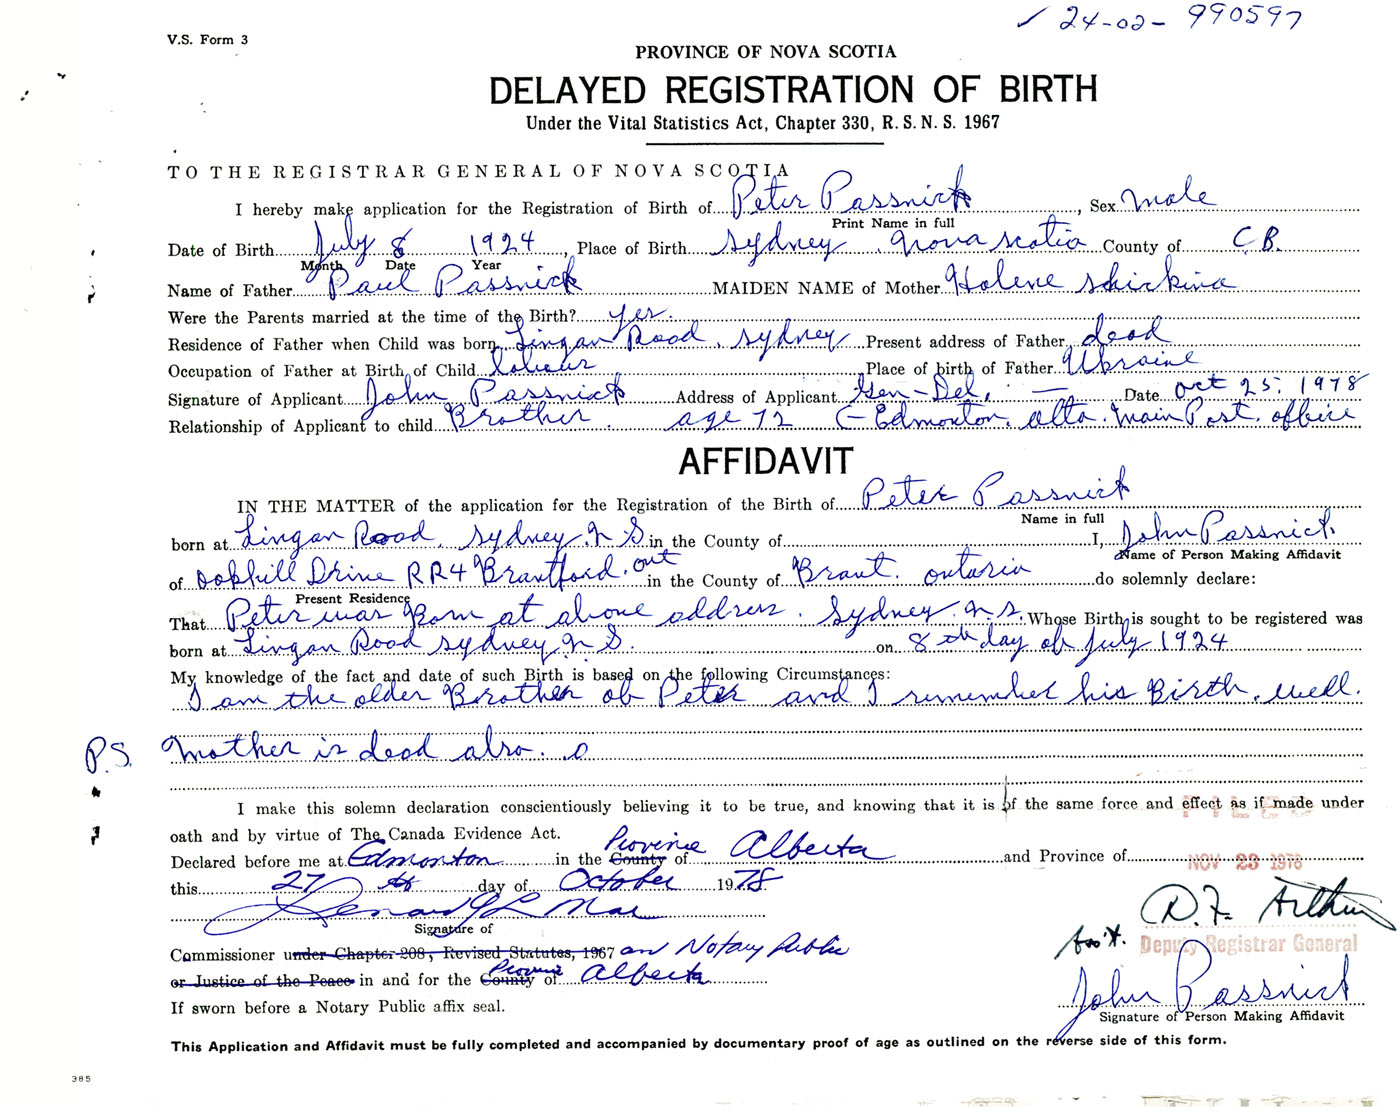 24-02- 990597
V.S. Form 3
PROVINCE OF NOVA SCOTIA
DELAYED REGISTRATION OF BIRTH
Under the Vital Statistics Act, Chapter 330, R.S.N.S. 1967
TO THE REGISTRAR GENERAL OF NOVA SCOTIA
I hereby make application for the Registration of Birth of Peter Passnick, Sex male
Print Name in full
Date of Birth July 8 1924, Place of Birth Sydney. Nova Scotia County of C.B.
Month Date Year
Name of Father Paul Passnick MAIDEN NAME of Mother Holene Shirkina
Were the Parents married at the time of the Birth? yes.
Residence of Father when Child was born Lingan Road, Sydney Present address of Father dead
Occupation of Father at Birth of Child labour Place of birth of Father Ukraine
Signature of Applicant John Passnick Address of Applicant Gen-Del, — Date Oct 25. 1978
Relationship of Applicant to child Brother. age 72 Edmonton. alta. Main Post. office
AFFIDAVIT
IN THE MATTER of the application for the Registration of the Birth of Peter Passnick
Name in full
born at Lingan Road, Sydney. N S in the County of I, John Passnick.
Name of Person Making Affidavit
of Drive RR4 Brantford. ont in the County of Brant. ontario do solemnly declare:
Present Residence
That Peter was Born at above address. Sydney. N.S. Whose Birth is sought to be registered was
born at Lingan Road Sydney N S. on 8th day of July 1924
My knowledge of the fact and date of such Birth is based on the following Circumstances:
I am the older Brother of Peter and I remember his Birth. well.
P.S. Mother is dead also.
I make this solemn declaration conscientiously believing it to be true, and knowing that it is of the same force and effect as if made under
FILED
oath and by virtue of The Canada Evidence Act.
Declared before me at Edmonton in the County Province of Alberta and Province of
NOV 23 1978
this 27th day of October 1978
D.F. Arthur
Signature of
Ass't. Deputy Registrar General
Commissioner under Chapter 208, Revised Statutes, 1967 an Notary Public
or Justice of the Peace in and for the County Province of Alberta
John Passnick
If sworn before a Notary Public affix seal.
Signature of Person Making Affidavit
This Application and Affidavit must be fully completed and accompanied by documentary proof of age as outlined on the reverse side of this form.
385